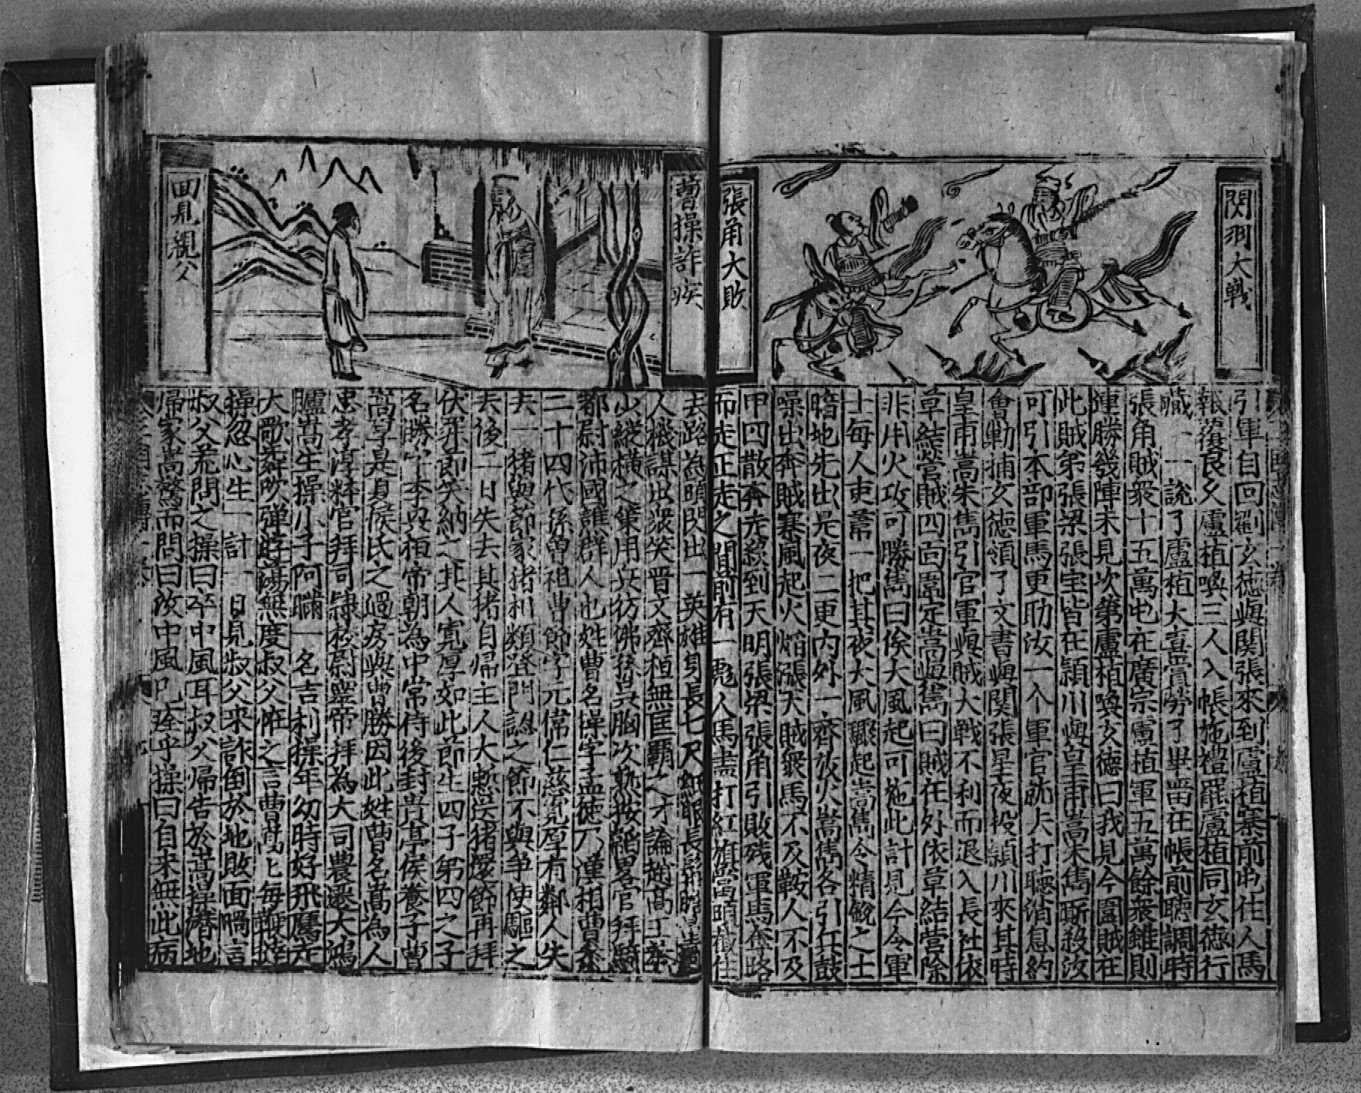 関羽大戰
張角大敗
引軍自回劉玄德與関張來到盧植寨前屯住人馬
報覆良久盧植喚三人入帳施禮罷盧植同玄德行
職一一說了盧植大喜賞勞了畢留在帳前聽調時
張角賊衆十五萬屯在廣宗盧植軍五萬餘衆雖則
連勝幾陣未見次第盧植喚玄德曰我見今圍賊在
此賊弟張梁張宝皆在潁川與皇甫嵩朱雋厮殺汝
可引本部軍馬更助汝一千軍官就去打聽消息約
會勦捕玄德領了文書與関張星夜投潁川來其時
皇甫嵩朱雋引官軍與賊大戰不利而退入長社依
草結營賊四面圍定嵩與雋曰賊在外依草結營除
非用火攻可勝雋曰俟大風起可施此計見今令軍
士每人束藁一把其夜大風驟起嵩雋令精銳之士
暗地先出是夜二更内外一齊放火嵩雋各引兵鼓
噪出奔賊寨風起火焰漲天賊衆馬不及鞍人不及
甲四散奔走殺到天明張梁張角引敗殘軍馬奪路
而走正走之間前有一彪人馬盡打紅旗當頭截住
曹操詐疾
回見親父
去路為頭閃出一英雄身長七尺細眼長髯瞻
人機謀出衆笑晋文齊桓無匡覇之才論趙高王莽
少縱橫之策用兵彷彿孫吳胸次熟按韜畧官拜騎
都尉沛國譙群人也姓曹名操字孟德乃漢相曹参
二十四代孫曽祖曹節字元偉仁慈寛厚有鄰人失
去一猪與節家猪相類登門認之節不與爭使驅之
去後二日失去其猪自歸主人大慙送猪還節再拜
伏罪節笑納之其人寛厚如此節生四子第四之子
名騰字季興桓帝朝為中常侍後封費亭侯養子曹
嵩字是夏侯氏之過房與曹騰因此姓曹名嵩為人
忠孝淳粹官拜司隸校尉靈帝拜為大司農遷大鴻
臚嵩生操小子阿瞞一名吉利操年幼時好飛鷹走
犬歌舞吹弹遊蕩無度叔父怪之言曹嵩七每鞭撻
操忽心生一計一日見叔父來詐倒於地敗面喎言
叔父荒問之操曰卒中風耳叔父歸告於嵩操潛地
歸家嵩驚而問曰汝中風已痊乎操曰自來無此病